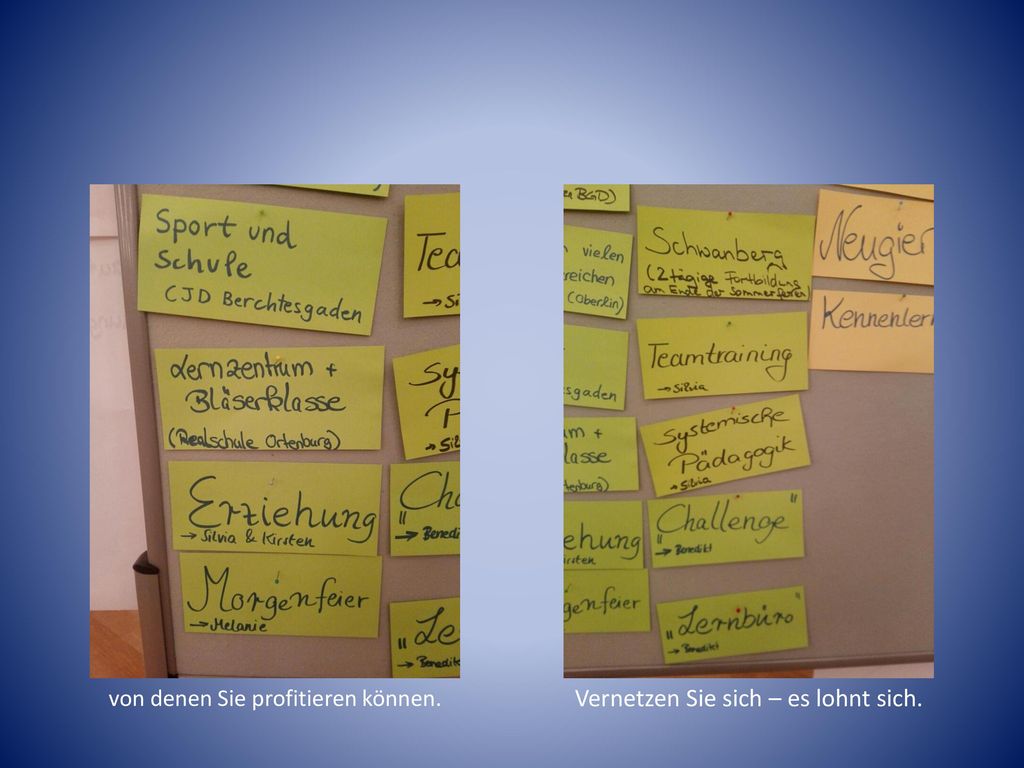 Sport und
Schule
CJD Berchtesgaden
Tea
→ Si
Lernzentrum +
Bläserklasse
(Realschule Ortenburg)
Sy
P
→ Sil
Erziehung
→ Silvia & Kirsten
"Cha
→ Benedi
Morgenfeier
→ Melanie
"Le
→ Benedikt
von denen Sie profitieren können.
en BGD)
n vielen
reichen
(Oberlin)
Schwanberg
(2 tägige Fortbildung
am Ende der Sommerferien)
Neugier
Kennenlern
Teamtraining
→ Silvia
sgaden
Systemische
Pädagogik
→ Silvia
um +
lasse
tenburg)
"Challenge"
→ Benedikt
ehung
irsten
genfeier
"Lernbüro"
→ Benedikt
Vernetzen Sie sich – es lohnt sich.